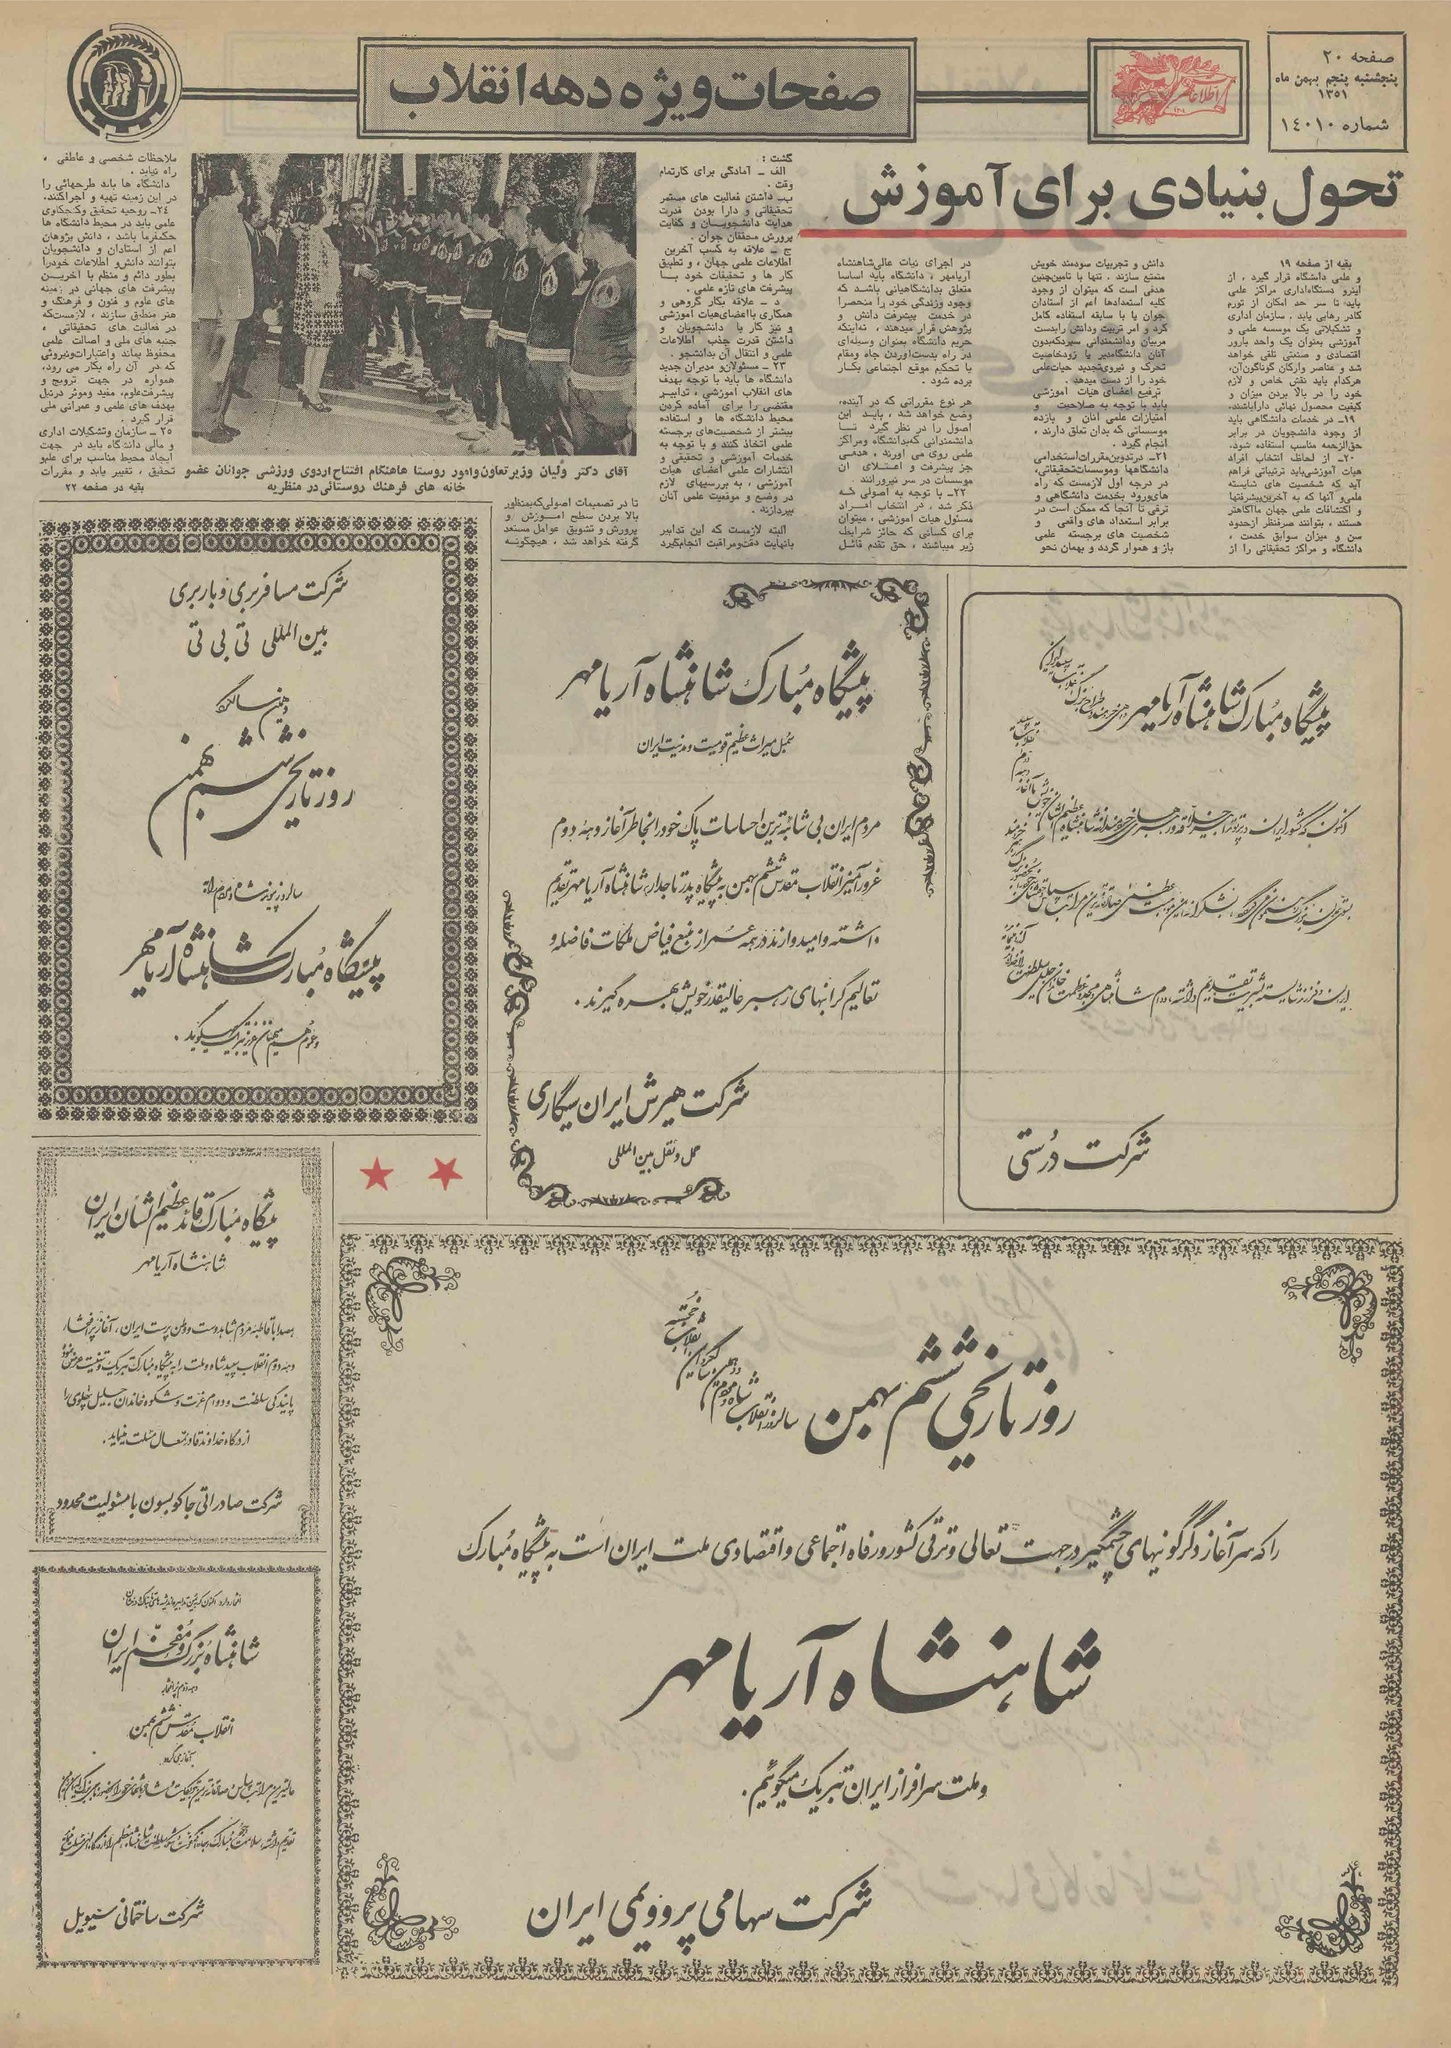 صفحه ۲۰
پنجشنبه پنجم بهمن ماه
۱۳۵۱
شماره ۱۴۰۱۰
اطلاعات
صفحات ویژه دهه انقلاب
تحول بنیادی برای آموزش
بقیه از صفحه ۱۹
و علمی دانشگاه قرار گیرد ، از
اینرو دستگاهاداری مراکز علمی
باید تا سر حد امکان از تورم
کادر رهایی یابد . سازمان اداری
و تشکیلاتی یک موسسه علمی و
آموزشی بعنوان یک واحد بارور
اقتصادی و صنعتی تلقی خواهد
شد و عناصر وارکان گوناگون‌آن،
هرکدام باید نقش خاص و لازم
خود را در بالا بردن میزان و
کیفیت محصول نهائی داراباشند،
۱۹ـ در خدمات دانشگاهی باید
از وجود دانشجویان در برابر
حق‌الزحمه مناسب استفاده شود.
۲۰ـ از لحاظ انتخاب افراد
هیات آموزشی‌باید ترتیباتی فراهم
آید که شخصیت های شایسته
علمی‌و آنها که به آخرین‌پیشرفتها
و اکتشافات علمی جهان ماآگاهتر
هستند ، بتوانند صرفنظر ازحدود
سن و میزان سوابق خدمت ،
دانشگاه و مراکز تحقیقاتی را از
دانش و تجربیات سودمند خویش
متمتع سازند ، تنها با تامین‌چنین
هدفی است که میتوان از وجود
کلیه استعدادها اعم از استادان
جوان یا با سابقه استفاده کامل
کرد و امر تربیت ودانش رابدست
مربیان ودانشمندانی سپردکه‌بدون
آنان دانشگاه‌دیر یا زودخاصیت
تحرک و نیروی‌تجدید حیات‌علمی
خود را از دست میدهد .
ترفیع اعضای هیات آموزشی
باید با توجه به صلاحیت و
امتیازات علمی آنان و بازده
موسساتی که بدان تعلق دارند ،
انجام گیرد .
۲۱ـ درتدوین‌مقررات‌استخدامی
دانشگاهها وموسسات‌تحقیقاتی،
در درجه اول لازمست که راه
های‌ورود بخدمت دانشگاهی و
ترقی تا آنجا که ممکن است در
برابر استعداد های واقعی و
شخصیت های برجسته علمی
باز و هموار گردد و بهمان نحو
در اجرای نیات عالی‌شاهنشاه
آریامهر ، دانشگاه باید اساسا
متعلق بدانشگاهیانی باشد که
وجود وزندگی خود را منحصرا
در خدمت پیشرفت دانش و
پژوهش قرار میدهند ، نه‌اینکه
حریم دانشگاه بعنوان وسیله‌ای
در راه بدست‌آوردن جاه ومقام
یا تحکیم موقع اجتماعی بکار
برده شود .
هر نوع مقرراتی که در آینده،
وضع خواهد شد ، باید این
اصول را در نظر گیرد تا
دانشمندانی که‌بدانشگاه ومراکز
علمی روی می آورند ، هدفی
جز پیشرفت و اعتلای آن
موسسات در سر نپرورانند .
۲۲ـ با توجه به اصولی که
ذکر شد ، در انتخاب افراد
مسئول هیات آموزشی، میتوان
برای کسانی که حائز شرایط
زیر میباشند ، حق تقدم قائل
گشت :
الف ـ آمادگی برای کارتمام
وقت .
ب‌ـ داشتن فعالیت های مستمر
تحقیقاتی و دارا بودن قدرت
هدایت دانشجویان و کفایت
پرورش محققان جوان .
ج ـ علاقه به کسب آخرین
اطلاعات علمی جهان ، و تطبیق
کار ها و تحقیقات خود با
پیشرفت های تازه علمی .
د ـ علاقه بکار گروهی و
همکاری بااعضای‌هیات آموزشی
و نیز کار با دانشجویان و
داشتن قدرت جذب اطلاعات
علمی و انتقال آن بدانشجو .
۲۳ـ مسئولان‌و مدیران جدید
دانشگاه ها باید با توجه بهدف
های انقلاب آموزشی ، تدابیر
مقتضی را برای آماده کردن
محیط دانشگاه ها و استفاده
بیشتر از شخصیت‌های برجسته
علمی اتخاذ کنند و با توجه به
خدمات آموزشی و تحقیقی و
انتشارات علمی اعضای هیات
آموزشی ، به بررسیهای لازم
در وضع و موقعیت علمی آنان
بپردازند .
البته لازمست که این تدابیر
بانهایت دقت‌ومراقبت انجام‌گیرد
تا در تصمیمات اصولی‌که‌بمنظور
بالا بردن سطح آموزش و
پرورش و تشویق عوامل مستعد
گرفته خواهد شد ، هیچگونه
ملاحظات شخصی و عاطفی ،
راه نیابد .
دانشگاه ها باید طرحهائی را
در این زمینه تهیه و اجراکنند.
۲۴ـ روحیه تحقیق وکنجکاوی
علمی باید در محیط دانشگاه ها
حکمفرما باشد ، دانش پژوهان
اعم از استادان و دانشجویان
بتوانند دانش‌و اطلاعات خودرا
بطور دائم و منظم با آخرین
پیشرفت های جهانی در زمینه
های علوم و فنون و فرهنگ و
هنر منطبق سازند ، لازمست‌که
در فعالیت های تحقیقاتی ،
جنبه های ملی و اصالت علمی
محفوظ بماند واعتبارات‌ونیروئی
که در آن راه بکار می رود،
همواره در جهت ترویج و
پیشرفت‌علوم، مفید وموثر درنیل
بهدف های علمی و عمرانی ملی
قرار گیرد .
۲۵ـ سازمان وتشکیلات اداری
و مالی دانشگاه باید در جهت
ایجاد محیط مناسب برای علم‌و
تحقیق ، تغییر یابد و مقررات
بقیه در صفحه ۲۲
آقای دکتر ولیان وزیر تعاون‌وامور روستا هاهنگام افتتاح اردوی ورزشی جوانان عضو
خانه های فرهنگ روستائی در منظریه
پیشگاه مبارک شاهنشاه آریامهر
شرکت درستی
پیشگاه مبارک شاهنشاه آریامهر
سمبل میراث عظیم قومیت و مدنیت ایران
مردم ایران بی شائبه‌ترین احساسات پاک خود را بخاطر آغاز دهه دوم
غرورآمیز انقلاب مقدس ششم بهمن به پیشگاه پدر تاجدار، شاهنشاه آریامهر تقدیم
داشته و امیدوارند در همه عمر از منبع فیاض ملکات فاضله و
تعالیم گرانبهای رهبر عالیقدر خویش بهره گیرند .
شرکت هیرش ایران سیگاری
حمل و نقل بین المللی
شرکت مسافربری و باربری
بین المللی تی بی تی
دهمین سالگرد
روز تاریخی ششم بهمن
پیشگاه مبارک شاهنشاه آریامهر
و عموم هم میهنان عزیز تبریک میگوید .
پیشگاه مبارک قائد عظیم الشان ایران
شاهنشاه آریامهر
همصدا با قاطبه مردم شاهدوست و وطن پرست ایران، آغاز پر افتخار
دهه دوم انقلاب سپید شاه و ملت را به پیشگاه مبارک تبریک و تهنیت عرض نموده
پایندگی سلطنت و دوام عزت و شکوه خاندان جلیل پهلوی را
از درگاه خداوند قادر متعال مسئلت مینماید .
شرکت صادراتی جاکوبسون با مسئولیت محدود
شاهنشاه بزرگ و مفخم ایران
انقلاب مقدس ششم بهمن
شرکت ساختمانی سیویل
روز تاریخی ششم بهمن
سالروز انقلاب شاه و مردم
را که سرآغاز دگرگونیهای چشمگیر در جهت تعالی و ترقی کشور و رفاه اجتماعی و اقتصادی ملت ایران است به پیشگاه مبارک
شاهنشاه آریامهر
و ملت سرافراز ایران تبریک میگوئیم .
شرکت سهامی پروویمی ایران